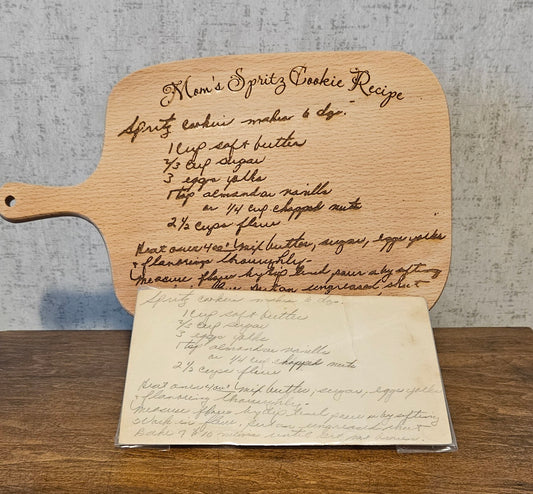 Mom's Spritz Cookie Recipe
Spritz cookies makes 6 dz.
1 cup soft butter
2/3 cup sugar
3 eggs yolks
1 tsp almond or vanilla
or 1/4 cup chopped nuts
2 1/2 cups flour
Heat oven 400° Mix butter, sugar, eggs yolks
& flavoring thoroughly-
Measure flour by dip level pour or by sifting
flour, put on ungreased sheet
Spritz cookies makes 6 dz.
1 cup soft butter
2/3 cup sugar
3 eggs yolks
1 tsp almond or vanilla
or 1/4 cup chopped nuts
2 1/2 cups flour
Heat oven 400° Mix butter, sugar, eggs yolks
& flavoring thoroughly-
Measure flour by dip level pour or by sifting
Work in flour, put on ungreased sheet
Bake 7 to 10 mins until set not brown.